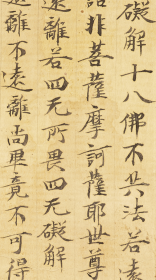 礙解十八佛不共法若遠
詰非菩薩摩訶薩耶世尊
遠離若四无所畏四无礙解
遠離不遠離尚畢竟不可得